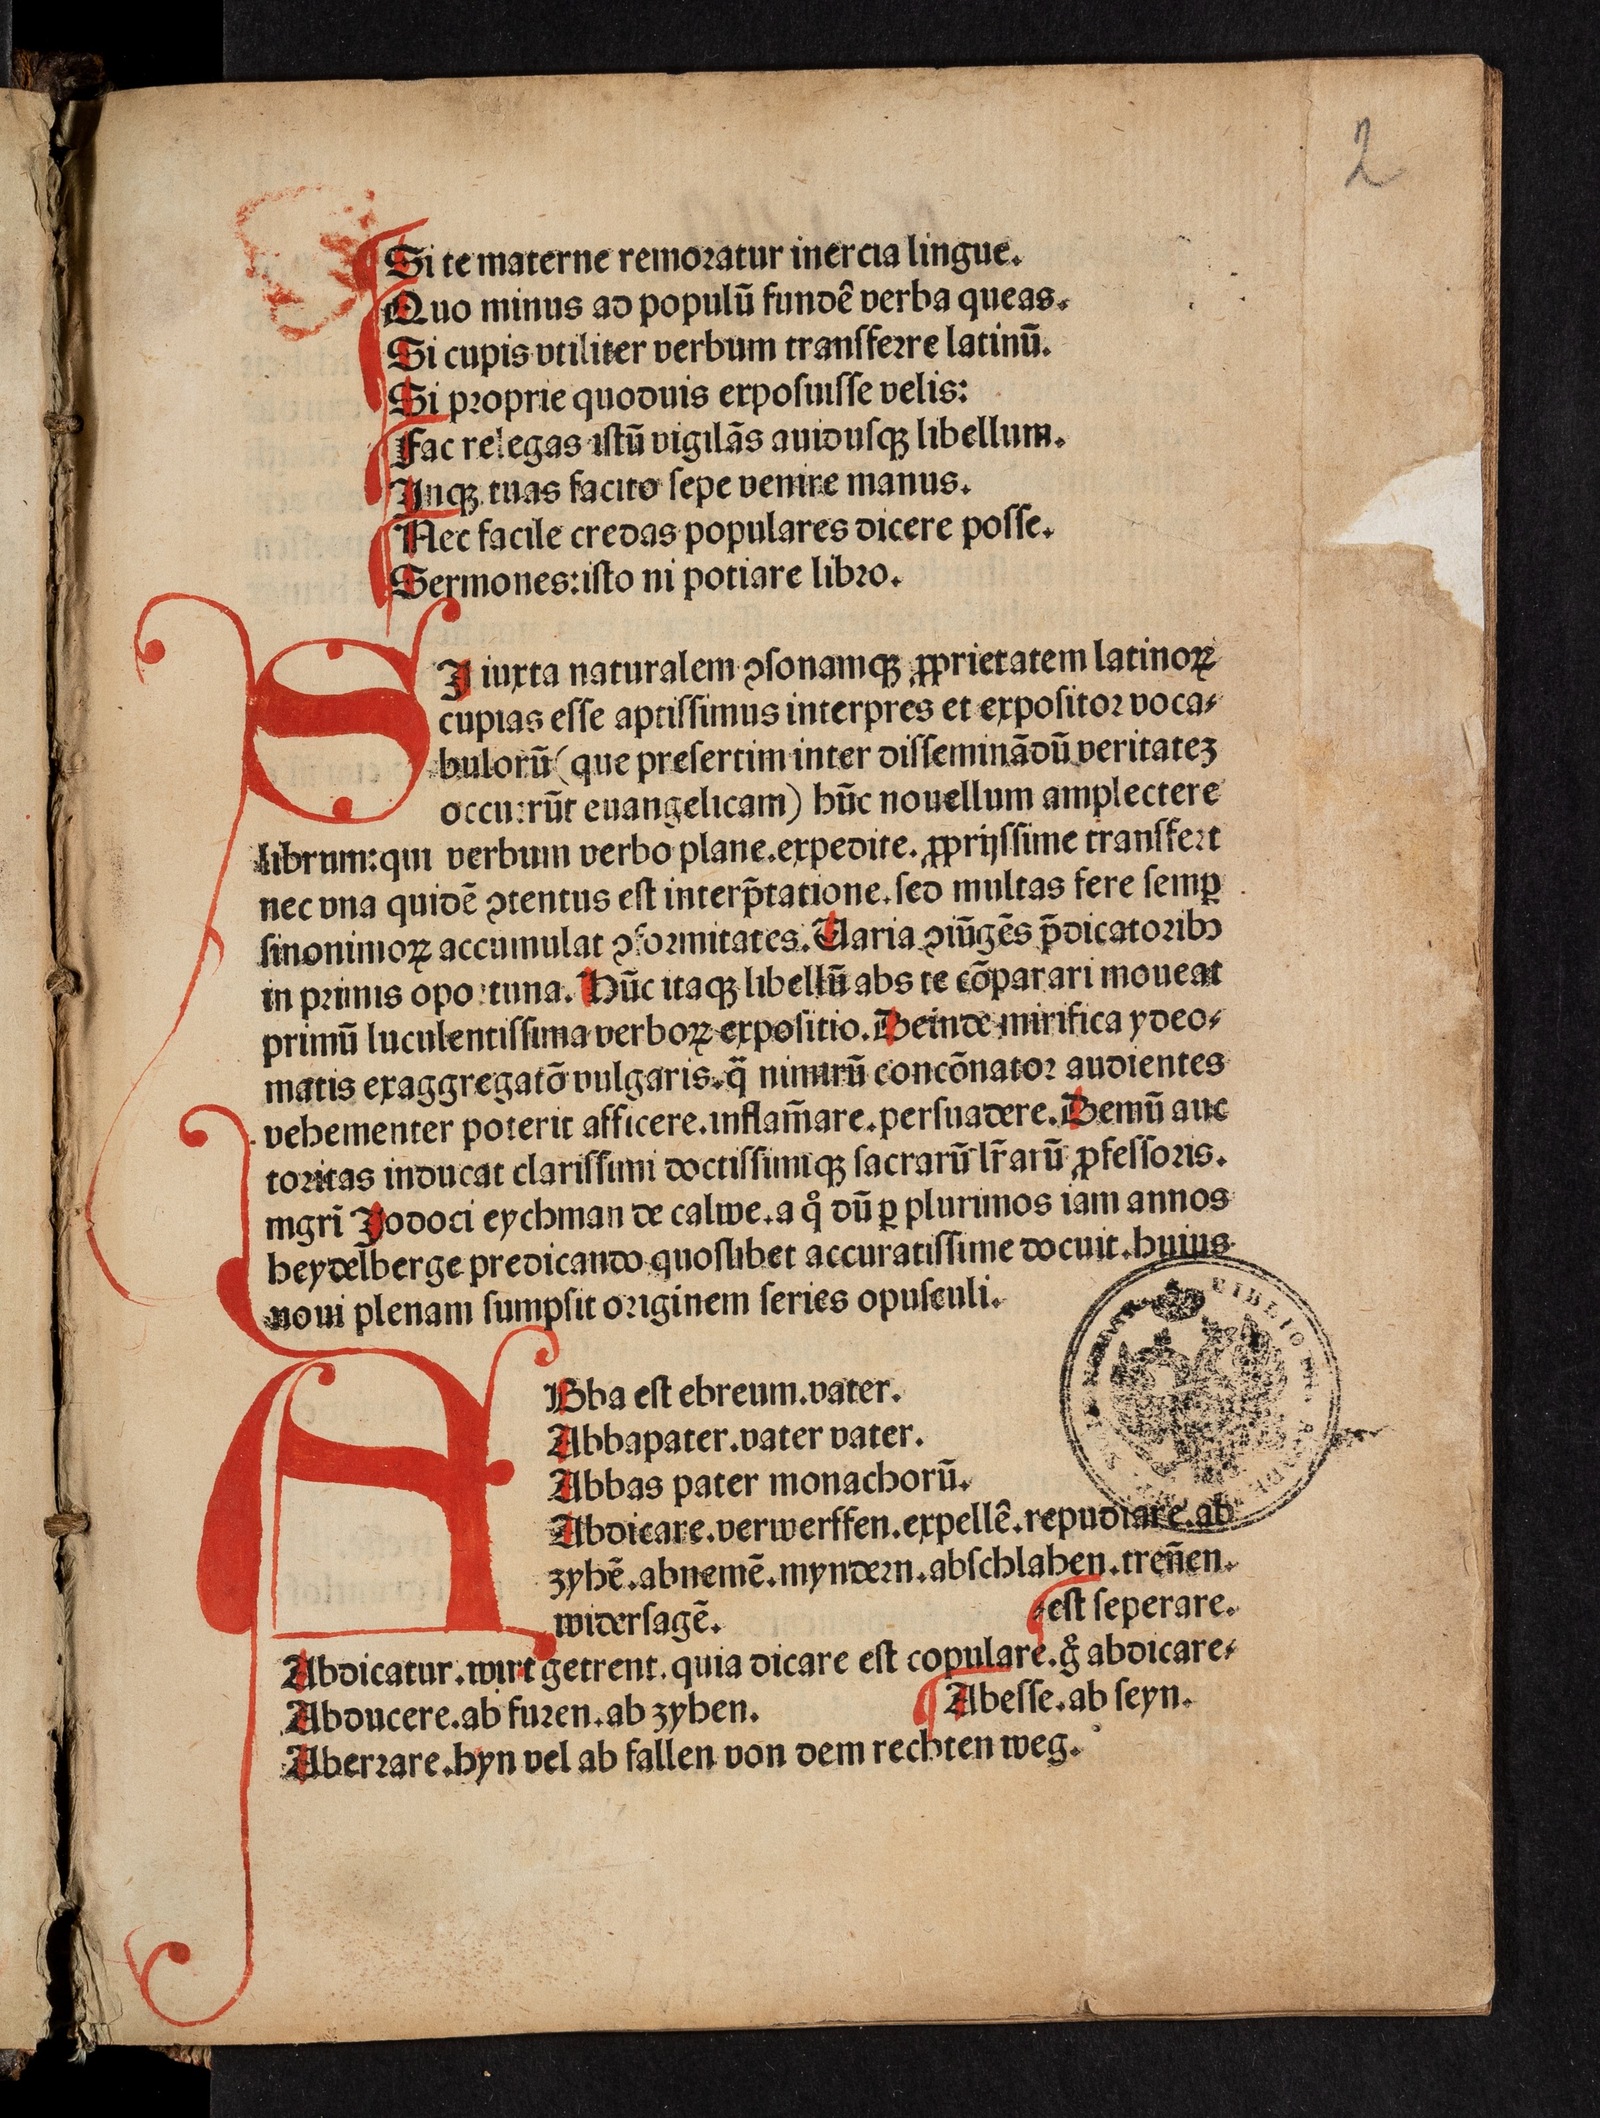 2
Si te materne remoratur inercia lingue.
Quo minus ad populū fundē verba queas.
Si cupis vtiliter verbum transferre latinū.
Si proprie quoduis exposuisse velis:
Fac relegas istū vigilās auidusqꝫ libellum.
Inqꝫ tuas facito sepe venire manus.
Nec facile credas populares dicere posse.
Sermones: isto ni potiare libro.
SI iuxta naturalem ꝯsonamqꝫ ꝓprietatem latinoꝝ
cupias esse aptissimus interpres et expositor voca⸗
bulorū (que presertim inter disseminādū veritateꝫ
occurrūt euangelicam) hūc nouellum amplectere
librum: qui verbum verbo plane. expedite. ꝓprijssime transfert
nec vna quidē ꝯtentus est interp̄tatione. sed multas fere semꝑ
sinonimoꝝ accumulat ꝯformitates. Uaria ꝯiūgēs p̄dicatoribꝰ
in primis oportuna. Hūc itaqꝫ libellū abs te cōparari moueat
primū luculentissima verboꝝ expositio. Deinde mirifica ydeo⸗
matis exaggregatō vulgaris. q̄ nimirū concōnator audientes
vehementer poterit afficere. inflam̄are. persuadere. Demū auc
toritas inducat clarissimi doctissimiqꝫ sacrarū lr̄arū ꝓfessoris.
mgrī Jodoci eychman de calwe. a qͦ dū ꝑ plurimos iam annos
heydelberge predicando quoslibet accuratissime docuit. huius
noui plenam sumpsit originem series opusculi.
ABba est ebreum. vater.
Abbapater. vater vater.
Abbas pater monachorū.
Abdicare. verwerffen. expellē. repudiare. ab
zyhē. abnemē. myndern. abschlahen. treñen.
widersagē. ⸗est seperare.
Abdicatur. wirt getrent. quia dicare est copulare. gͦ abdicare⸗
Abducere. ab furen. ab zyhen. ¶ Abesse. ab seyn.
Aberrare. hyn vel ab fallen von dem rechten weg.